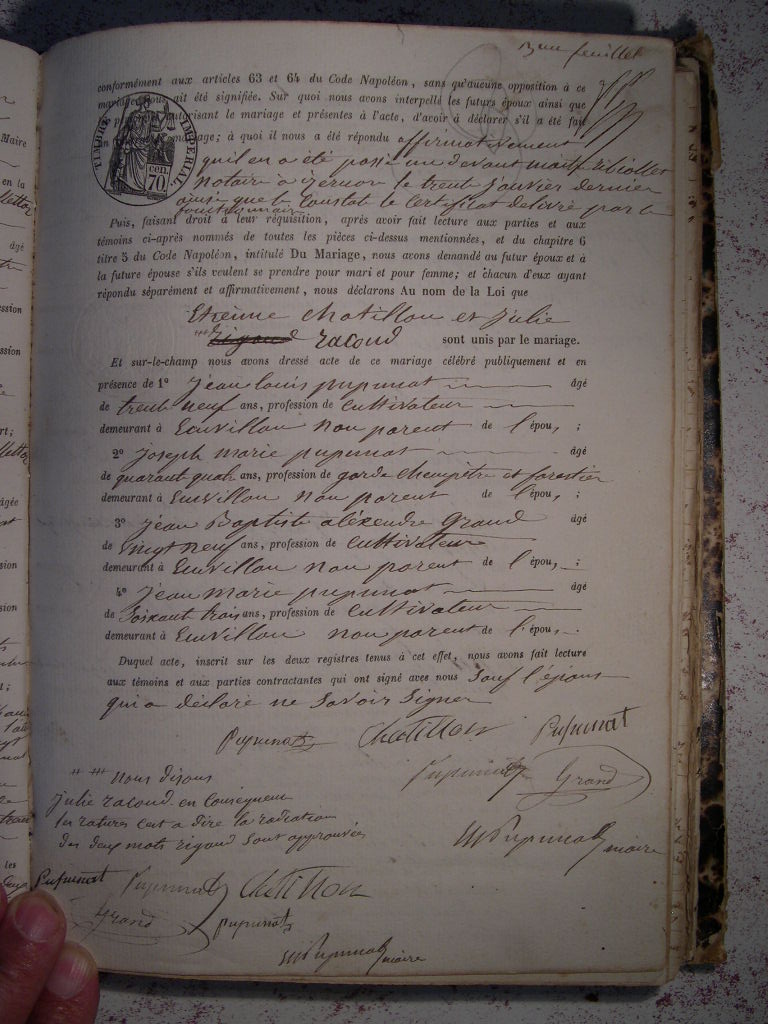 3me feuillet
conformément aux articles 63 et 64 du Code Napoléon, sans qu'aucune opposition à ce
mariage nous ait été signifiée. Sur quoi nous avons interpellé les futurs époux ainsi que
autorisant le mariage et présentes à l'acte, d'avoir à déclarer s'il a été fait
un mariage; à quoi il nous a été répondu affirmativement
TIMBRE IMPERIAL
cen.
70
qu'il en a été passé un devant maitre
notaire à le trente Janvier dernier
ainsi que le constat le Certificat délivré par le
fonctionnaire
Puis, faisant droit à leur réquisition, après avoir fait lecture aux parties et aux
témoins ci-après nommés de toutes les pièces ci-dessus mentionnées, et du chapitre 6
titre 5 du Code Napoléon, intitulé Du Mariage, nous avons demandé au futur époux et à
la future épouse s'ils veulent se prendre pour mari et pour femme; et chacun d'eux ayant
répondu séparément et affirmativement, nous déclarons Au nom de la Loi que
Etienne Chatillon et Julie
rigoud racoud sont unis par le mariage.
Et sur-le-champ nous avons dressé acte de ce mariage célébré publiquement et en
présence de 1° Jean louis pupunat âgé
de trente neuf ans, profession de Cultivateur
demeurant à Echvillon non parent de l'épou,;
2° joseph marie pupunat âgé
de quarant quatr ans, profession de garde champêtre et forestier
demeurant à Echvillon non parent de l'épou,;
3° jean Baptiste aléxendre Grand âgé
de vingt neuf ans, profession de Cultivateur
demeurant à Echvillon non parent de l'épou,;
4° Jean marie pupunat âgé
de Soixant trois ans, profession de Cultivateur
demeurant à Echvillon non parent de l'épou,.
Duquel acte, inscrit sur les deux registres tenus à cet effet, nous avons fait lecture
aux témoins et aux parties contractantes qui ont signé avec nous Sauf l'épouse
qui a déclaré ne Savoir Signer
Pupunat Chatillon Pupunat
Pupunat Grand
Nous disons
julie racoud en Conséquence
les ratures C'est a dire la radiation
des deux mots rigoud Sont approuvées
Pupunat maire
Pupunat Pupunat Chatillon
Grand Pupunat
Pupunat maire